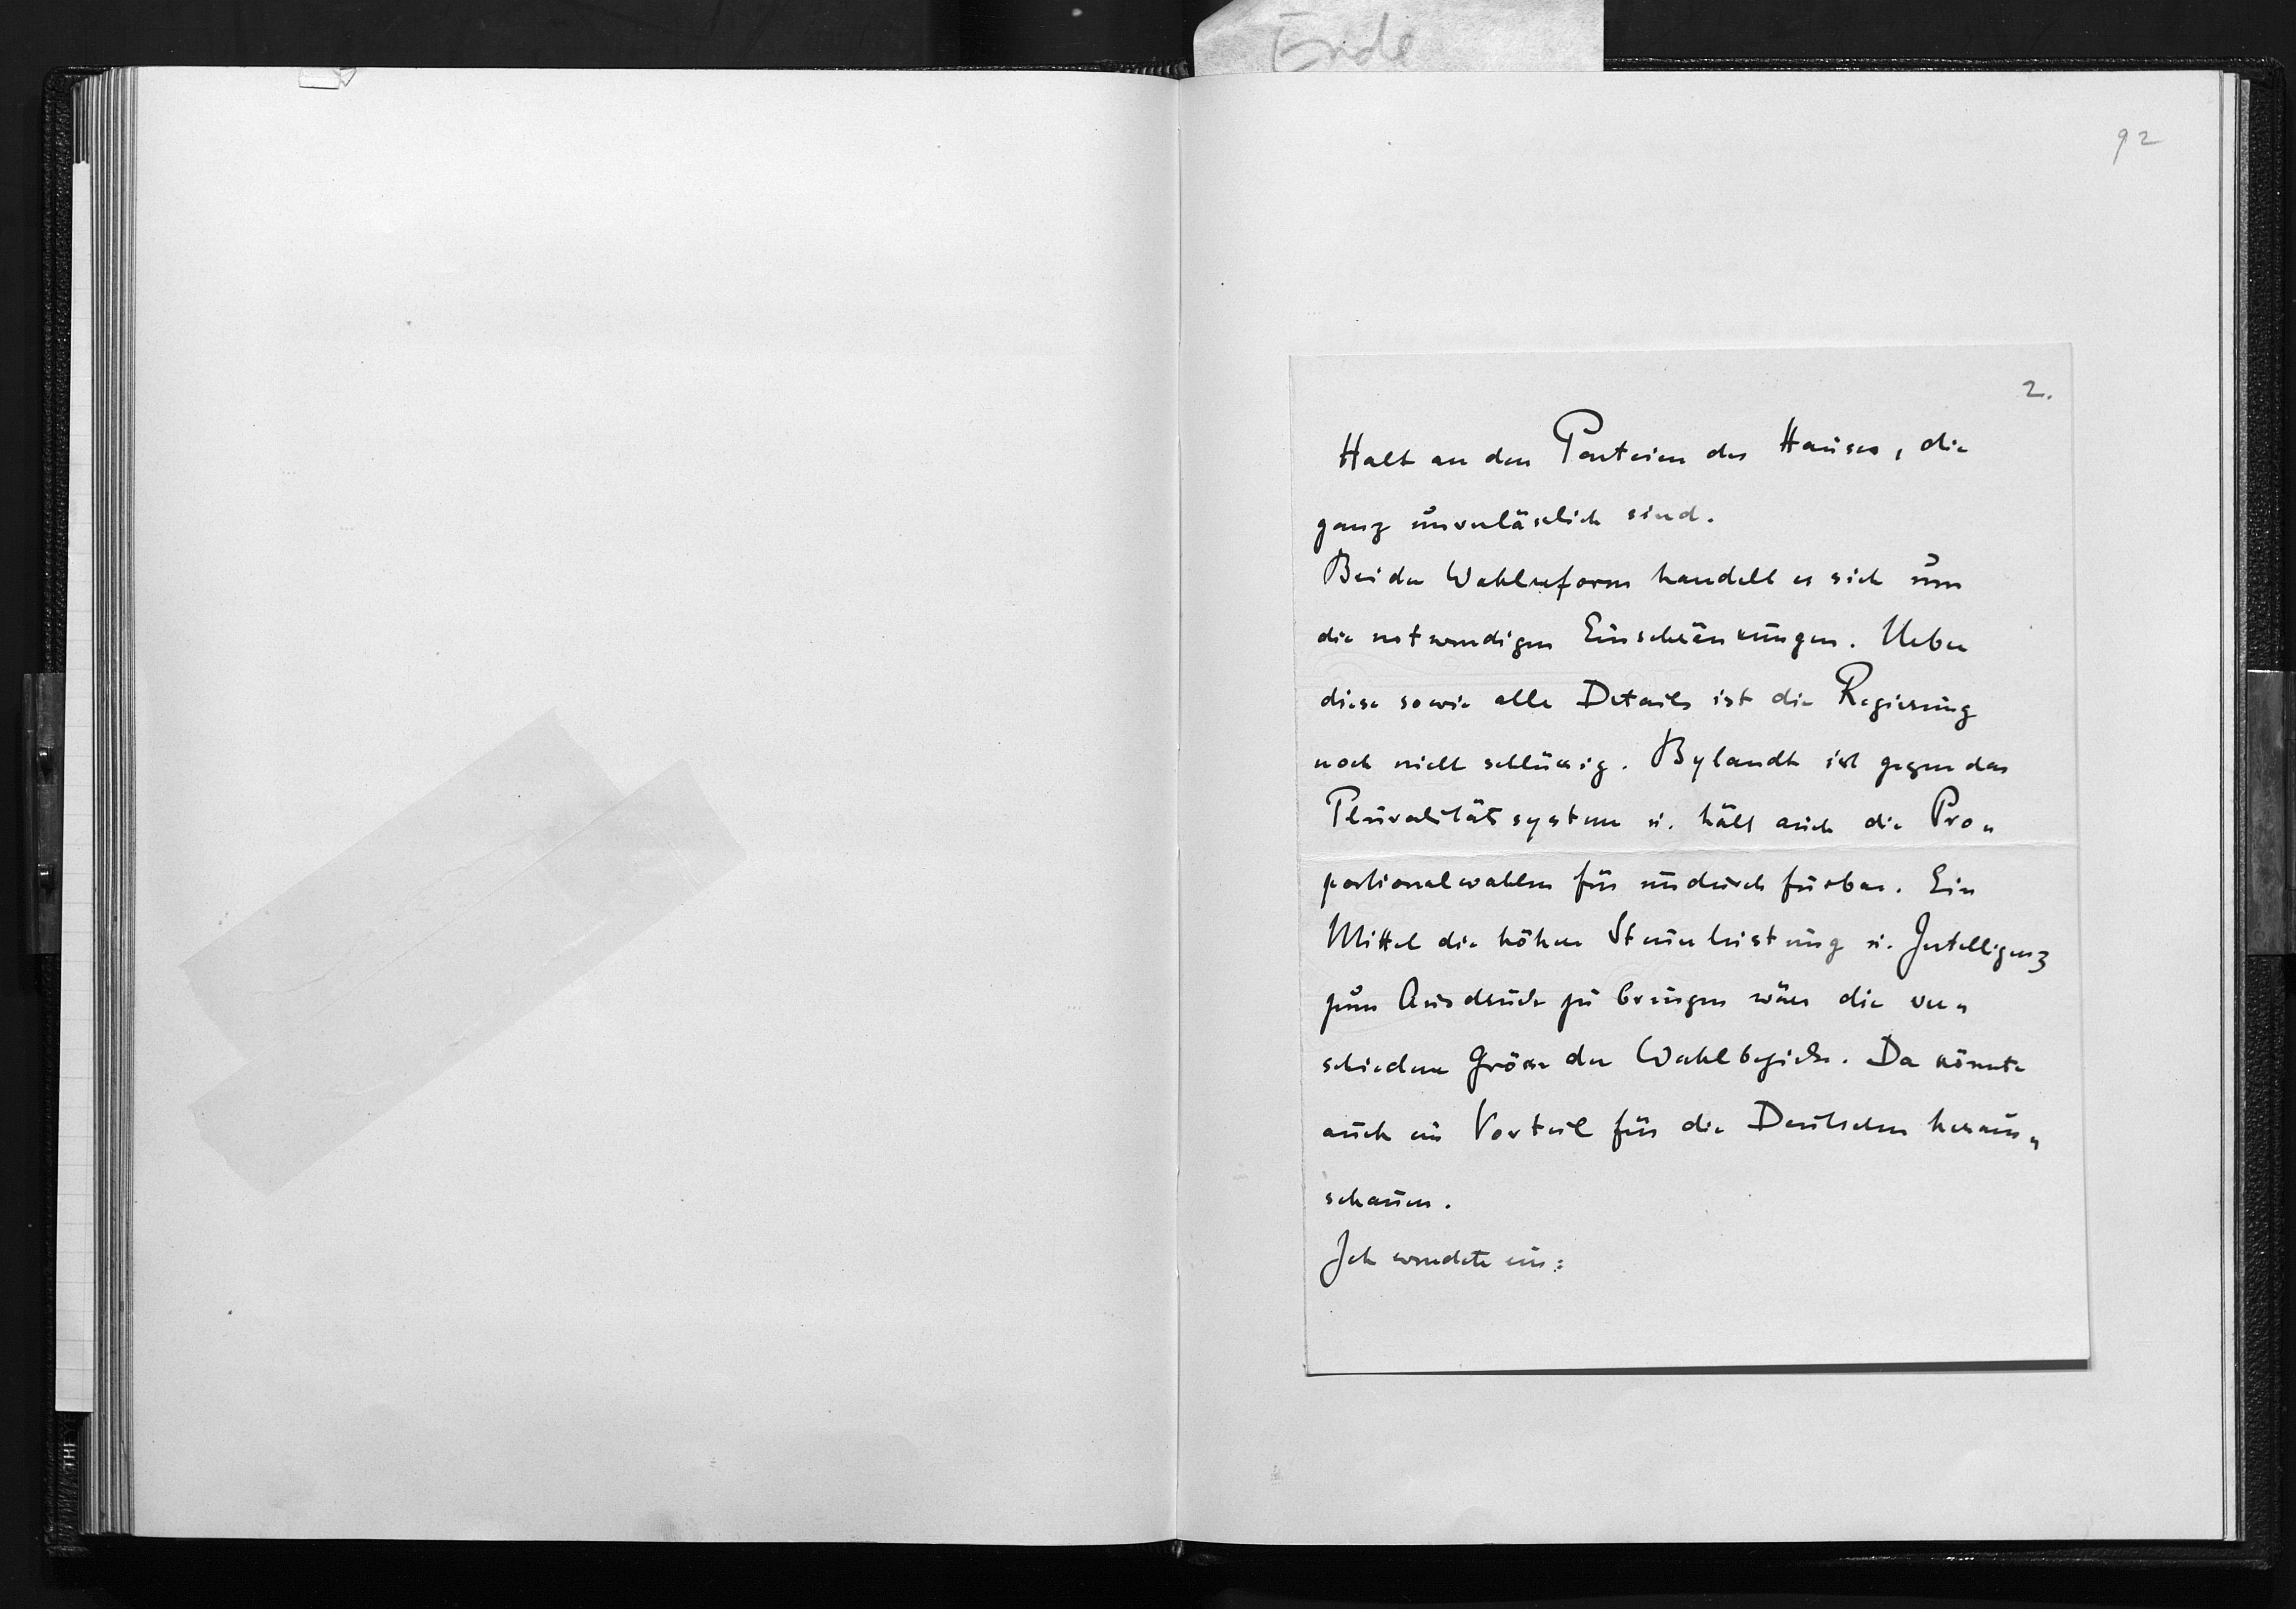 Ende
92
2.
Halt an den Parteien des Hauses, die
ganz unverläslich sind.
Bei der Wahlreform handelt es sich um
die notwendigen Einschränkungen. Ueber
diese sowie alle Details ist die Regierung
noch nicht schlüssig. Bylandt ist gegen das
Pluralitätsystem u. hält auch die Pro„
portionalwahlen für undurchfürbar. Ein
Mittel die höhere Steuerleistung u. Intelligenz
zum Ausdruck zu bringen wäre die ver„
schiedene Grösse der Wahlbezirke. Da könnte
auch ein Vorteil für die Deutschen heraus„
schauen.
Ich wendete ein: